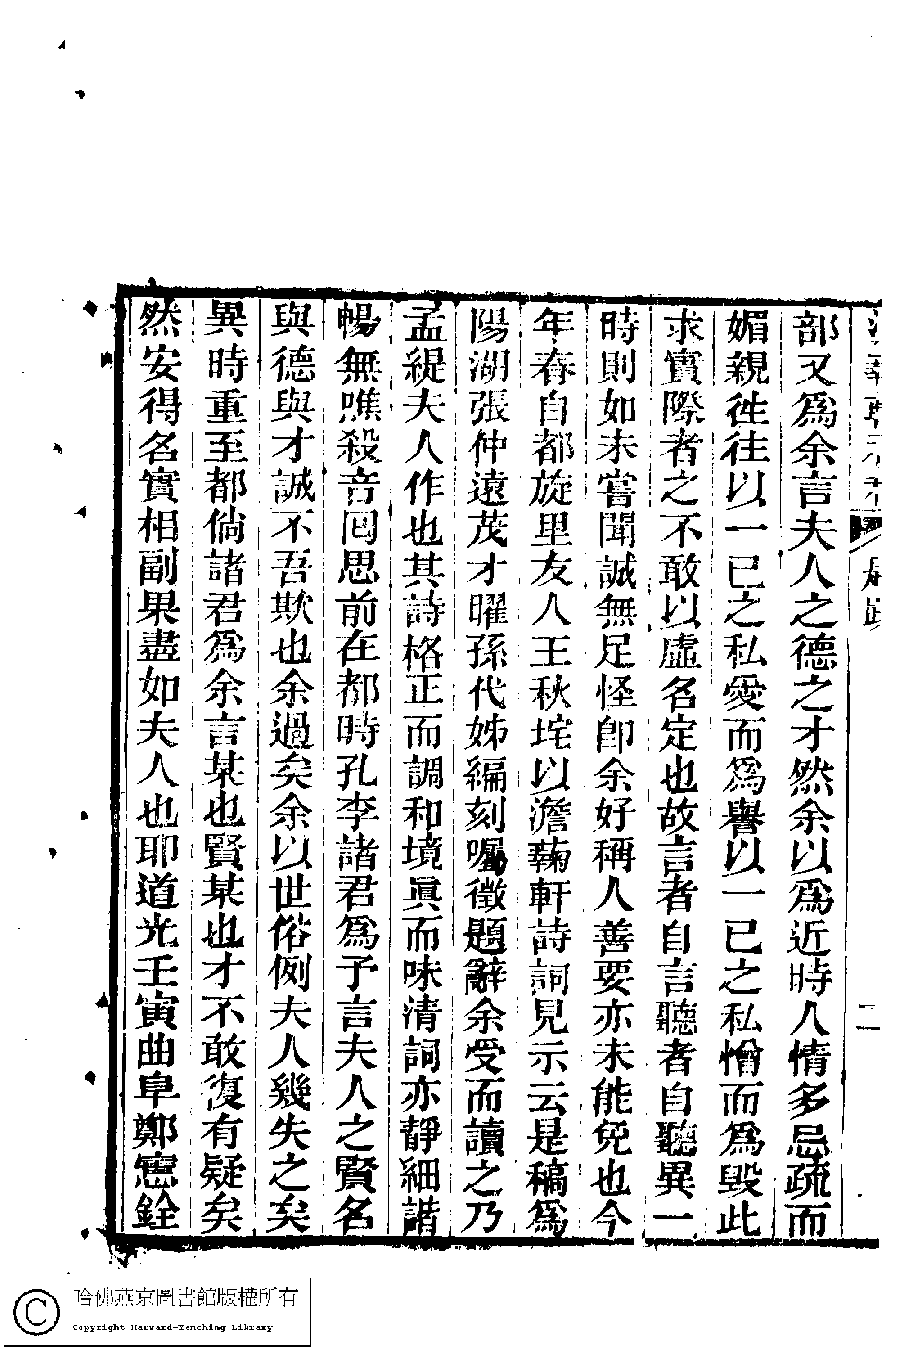 部又為余言夫人之德之才然余以為近時人情多忌疏而
媚親徃往以一已之私愛而為譽以一已之私憎而為毀此
求實際者之不敢以虛名定也故言者自言聽者自聽異一
時則如未嘗聞誠無足怪卽余好稱人善要亦未能免也今
年春自都旋里友人王秋垞以澹蘜軒詩詞見示云是稿為
陽湖張仲遠茂才曜孫代姊編刻囑徵題辭余受而讀之乃
孟緹夫人作也其詩格正而調和境眞而味清詞亦靜細諧
暢無噍殺音囘思前在都時孔李諸君為予言夫人之賢名
與德與才誠不吾欺也余過矣余以世俗例夫人幾失之矣
異時重至都倘諸君為余言某也賢某也才不敢復有疑矣
然安得名實相副果盡如夫人也耶道光壬寅曲阜鄭憲銓
二
哈佛燕京圖書館版權所有
Copyright Harvard-Yenching Library